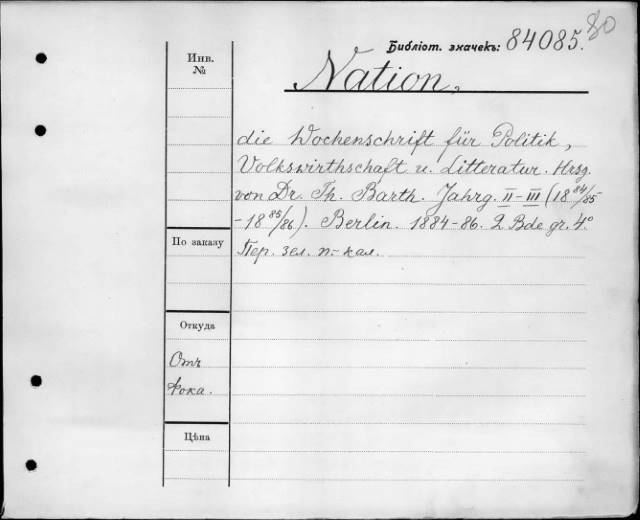 Библіот. значекъ: 84085. 80
Инв.
№
Nation,
die Wochenschrift für Politik,
Volkswirthschaft u. Litteratur. Hrsg.
von Dr. Th. Barth. Jahrg. II-III (18 84/85
-18 85/86). Berlin. 1884-86. 2 Bde. gr. 4°
По заказу
Пер. зел. п.-кал.
Откуда
Отъ
Фока.
Цѣна